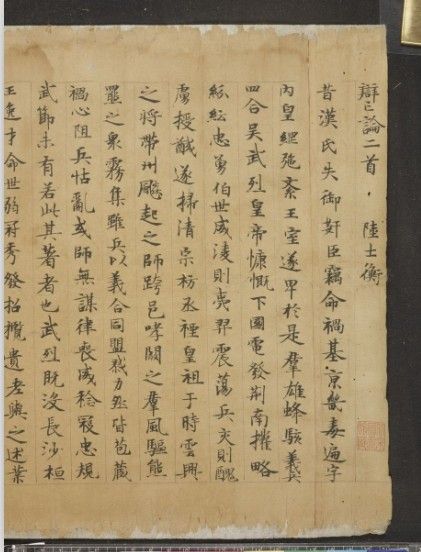 辯亡論二首，陸士衡
昔漢氏失御奸臣竊命禍基京畿毒遍宇
內皇綱弛紊王室遂卑於是羣雄蜂駭義兵
四合吳武烈皇帝慷慨下國電發荊南權略
紛紜忠勇伯世威凌則夷羿震蕩兵交則醜
虜授馘遂掃清宗祊丞禋皇祖于時雲興
之將帶州飈起之師跨邑哮闞之羣風驅熊
羆之衆霧集雖兵以義合同盟戮力然皆苞藏
禍心阻兵怙亂或師無謀律喪威稔寇忠規
武節未有若此其著者也武烈既沒長沙桓
王逸才命世弱冠秀發招攬遺老與之述業